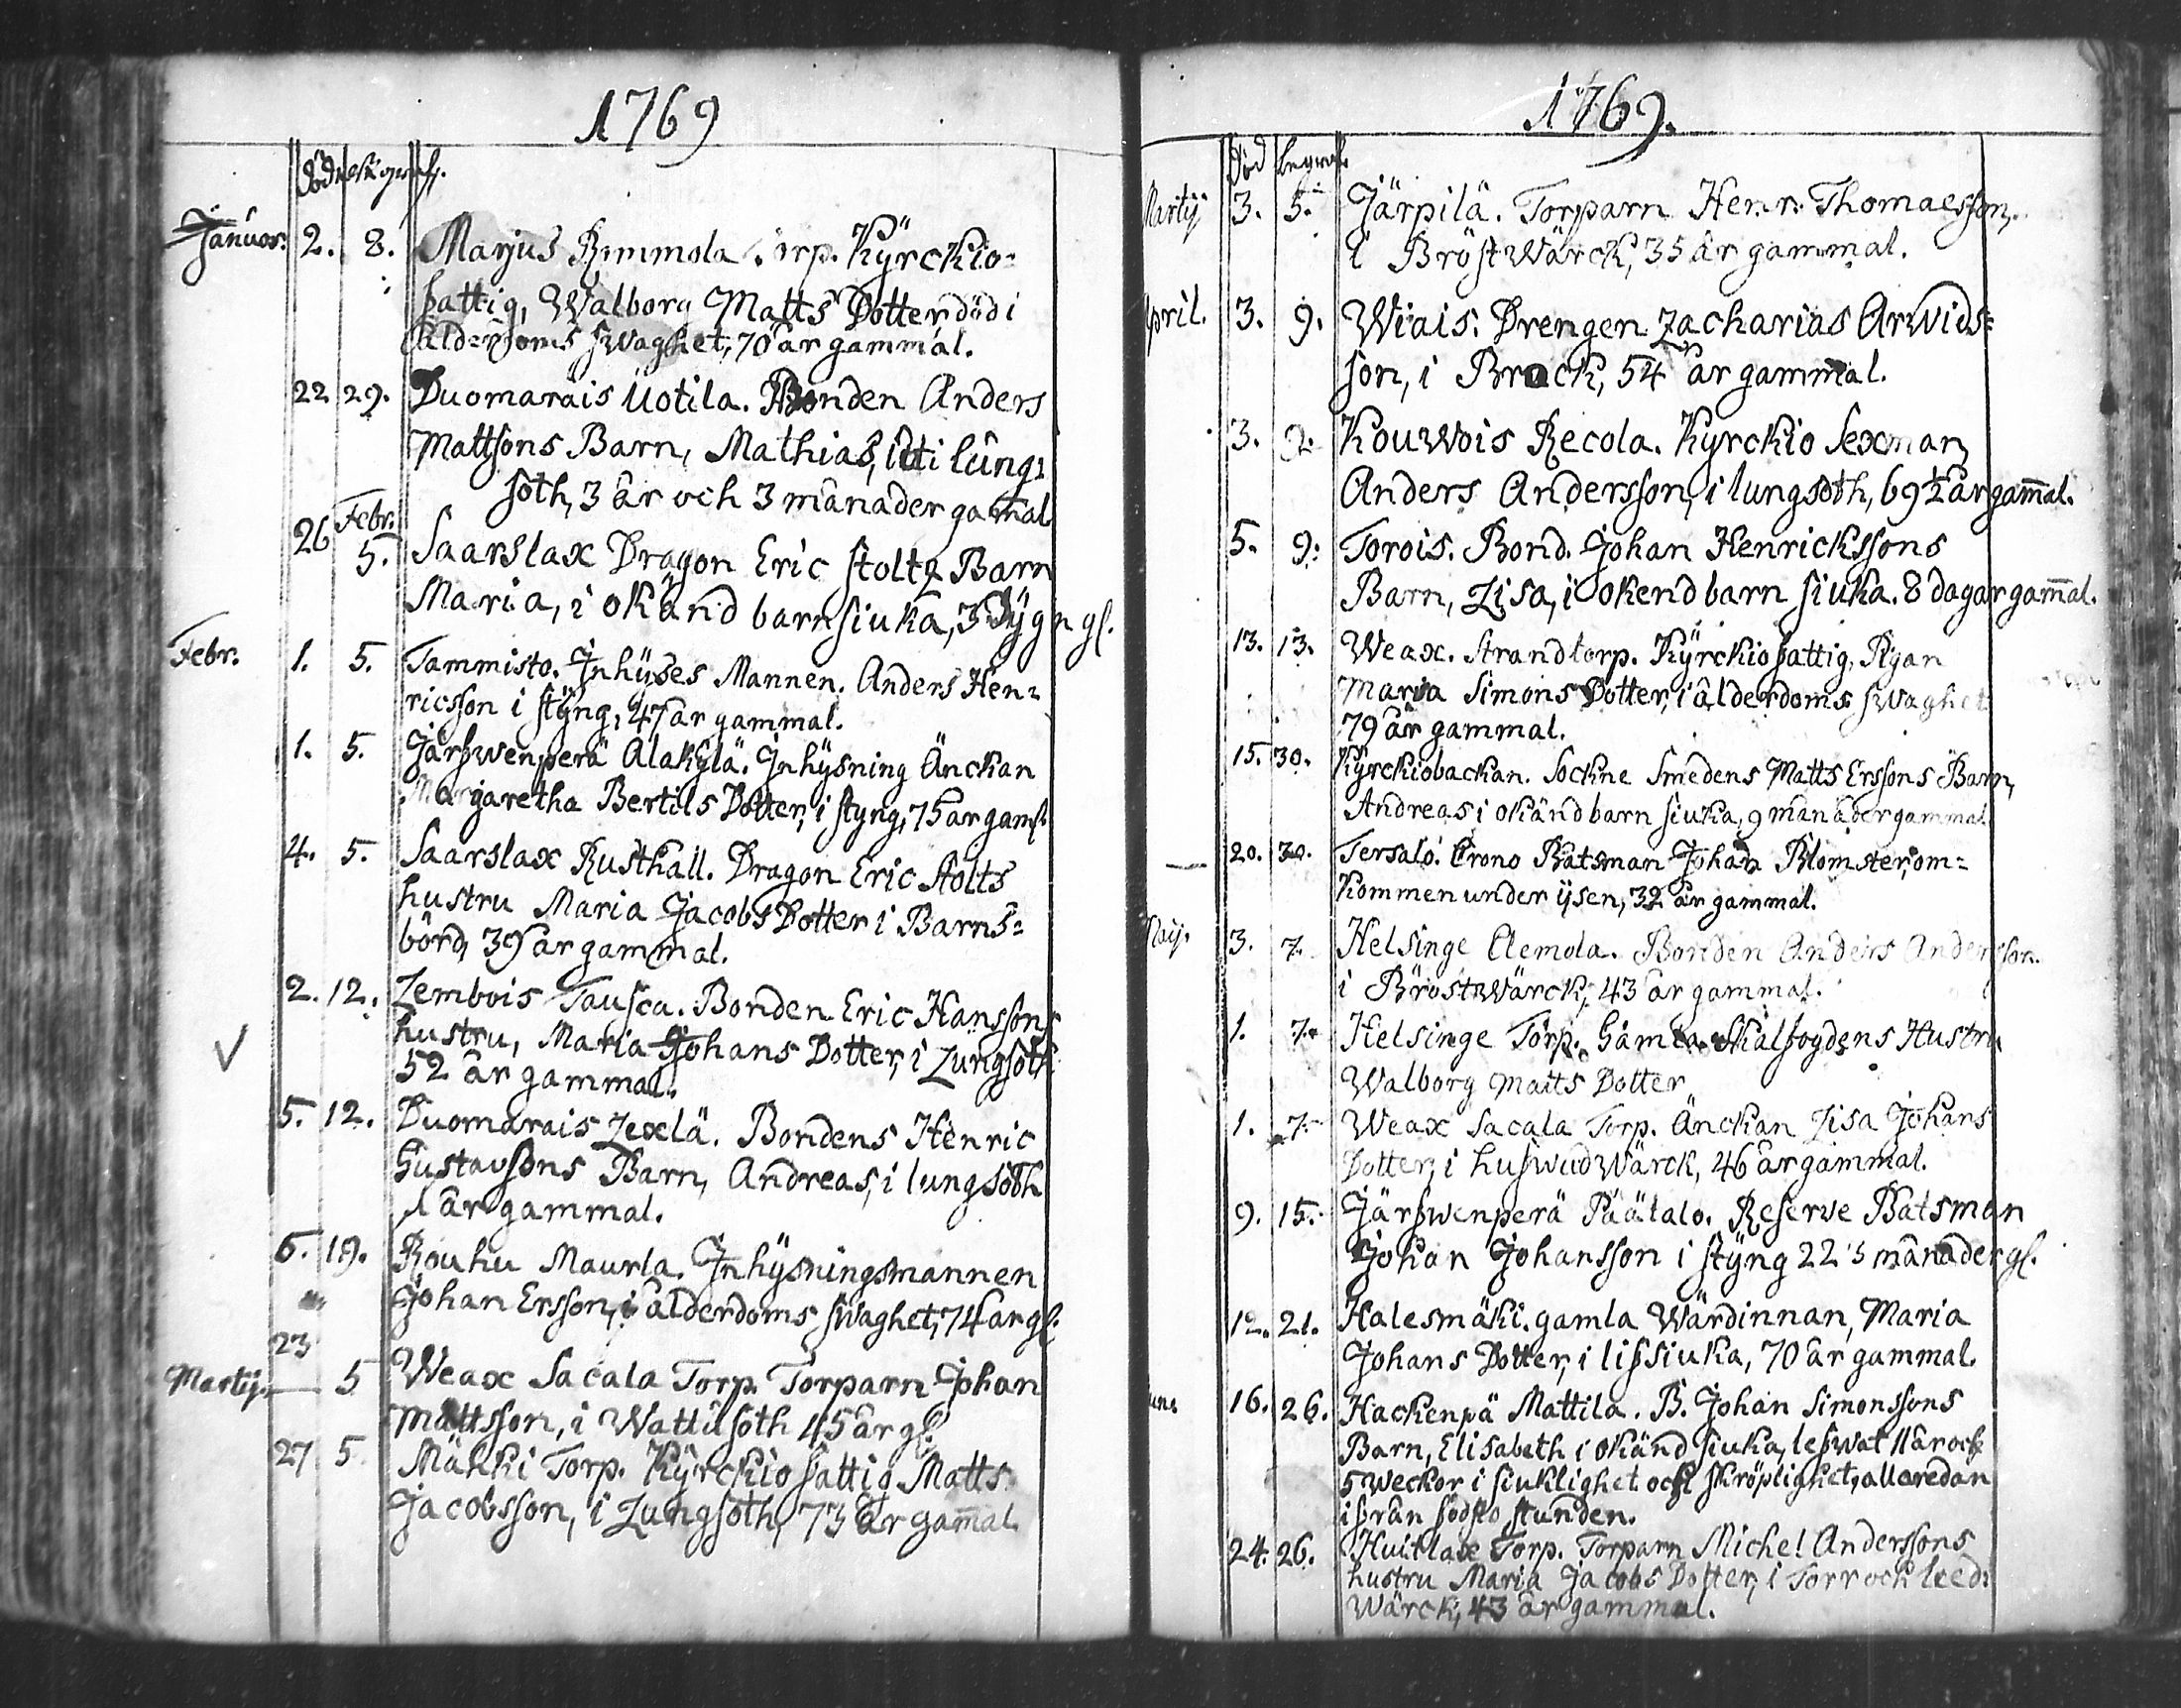 1769
död begraf.
Januar. 2. 8. Marjus Rimmola Torp. Kÿrckio=
fattig, Walborg Matts Dotter, död i
ålderdoms swaghet, 70 år gammal.
22 29. Duomarais Uotila. Bonden Anders
Mattsons Barn, Mathias, uti lung=
soth, 3 år och 3 månader gamal
26 Febr. 5. Saarslax Dragon Eric Stoltz Barn
Maria, i okänd barnsiuka, 3 dÿgn gl.
Febr. 1. 5. Tammisto. Inhÿses Mannen. Anders Hen=
ricsson i stÿng, 47 år gammal.
1. 5. Järfwenperä Alakÿlä. Inhÿsning Änckan
Margaretha Bertils Dotter, i styng, 75 år gaml.
4. 5. Saarslax Rusthåll. Dragon Eric Stolts
hustru Maria Jacobs Dotter i Barns=
börd, 39 år gammal.
2. 12. Lembois Tausca. Bonden Eric Hanssons
hustru, Maria Johans Dotter, i Lungsoth
52 år gammal.
5. 12. Duomarais Lexlä. Bondens Henric
Gustavsons Barn, Andreas, i lungsoth
1 år gammal.
6. 19. Rouhu Maurla. Inhÿsningsmannen
Johan Ersson, i ålderdoms swaghet, 74 år gl.
23
Martij. — 5 Weax Sacala Torp. Torparn Johan
Mattsson, i Wattusoth 45 år gl.
27 5 Mähki Torp. Kÿrckio fattig Matts
Jacobsson, i Lungsoth, 73 år gamal.
1769.
död begraf.
Martij 3. 5. Järpilä. Torparn Henr. Thomaesson,
i BröstWärck, 35 år gammal.
April. 3. 9. Wiais. Drengen Zacharias Arwids=
son, i Bråck, 54 år gammal.
3. 2. Kouwois Recola. Kyrckio Sexman,
Anders Andersson, i lungsoth, 69 ½ år gamal.
5. 9. Torois. Bond. Johan Henrickssons
Barn, Lisa, i okend barn siuka. 8 dagar gamal.
13. 13. Weax. Strandtorp. Kÿrckio fattig, Pigan
Maria Simons Dotter, i ålderdoms swaghet
79 år gammal.
15. 30. Kÿrckiobackan. Sockne Smedens Matts Erssons Barn,
Andreas i okänd barn siuka, 9 månader gammal
— 20. 30. Tersalo. Crono Båtsman Johan Blomster, om=
kommen under ÿsen, 32 år gammal.
Maij. 3. 7. Helsinge Clemola. Bonden Anders Andersson.
i BröstWärck, 43 år gammal.
1. 7. Helsinge Torp. Gamla Hustru
Walborg Matts Dotter
1. 7. Weax Sacala Torp. Änckan Lisa Johans
Dotter, i hufwudWärck, 46 år gammal.
9. 15. Järfwenperä Päätalo. Reserve Båtsman
Johan Johansson i stÿng 22 5 månader gl.
12. 21. Halesmäki. gamla Wärdinnan, Maria
Johans Dotter, i lifsiuka, 70 år gammal.
Iune 16. 26. Hackenpä Mattila. B. Johan Simonssons
Barn, Elisabeth i okänd siuka, lefwat 11 år och
5 weckor i siuklighet och skröplighet, allaredan
ifrån födslo stunden.
24. 26. Huitlax Torp. Torparn Michel Anderssons
hustru Maria Jacobs Dotter, i Torr och leed=
Wärck, 43 år gammal.